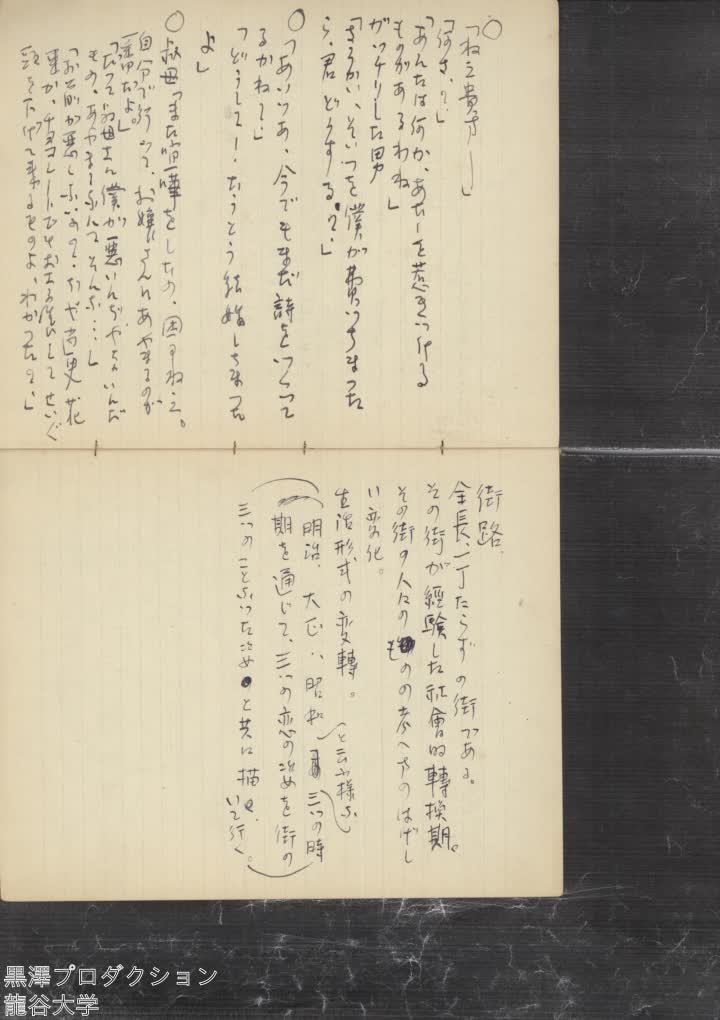 ○「ねえ貴方――」
「何さ、？」
「あんたは何か、あたしを惹きつける
ものがあるわね」
がっチリした男
「さうかい、そいつを僕が貰っちまった
ら、君どうする？」
○「あいつあ、今でもまだ詩をつくって
るかね？」
「どうして！、たうとう結婚しちまった
よ」
○叔母「また喧嘩をしたの、困りねえ。
自分で行って、お嬢さんにあやまるのが
一番だよ」
「だってお母さん僕が悪いんぢやないんだ
もの、あやまるなんてそんな…」
「お前が悪くないので、たゞ、
頭を下げて来るものよ、わかったの」
街路、
全長一丁たらずの街である。
その街が経験した社會的轉換期。
その街の人々のものの考へ方のはげし
い変化。
生活形式の変轉。と云ふ様な
（明治、大正、昭和 三つの時
期を通じて、三つの恋の
三つの と共に描
いて行く。）
黒澤プロダクション
龍谷大学